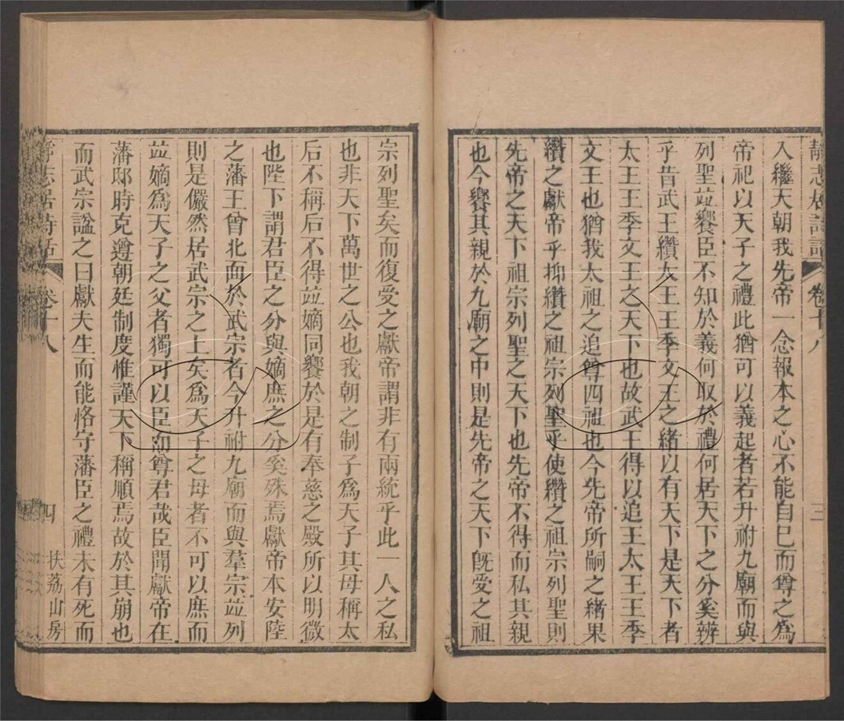 靜志居詩話 卷十八 三
入繼天朝我先帝一念報本之心不能自已而尊之爲
帝祀以天子之禮此猶可以義起者若升祔九廟而與
列聖竝饗臣不知於義何取於禮何居天下之分奚辨
乎昔武王纘大王王季文王之緒以有天下是天下者
太王王季文王之天下也故武王得以追王太王王季
文王也猶我太祖之追尊四祖也今先帝所嗣之緒果
纘之獻帝乎抑纘之祖宗列聖乎使纘之祖宗列聖則
先帝之天下祖宗列聖之天下也先帝不得而私其親
也今饗其親於九廟之中則是先帝之天下旣受之祖
宗列聖矣而復受之獻帝謂非有兩統乎此一人之私
也非天下萬世之公也我朝之制子爲天子其母稱太
后不稱后不得竝嫡同饗於是有奉慈之殿所以明微
也陛下謂君臣之分與嫡庶之分奚殊焉獻帝本安陸
之藩王曾北面於武宗者今升祔九廟而與羣宗竝列
則是儼然居武宗之上矣爲天子之母者不可以庶而
竝嫡爲天子之父者獨可以臣而尊君哉臣聞獻帝在
藩邸時克遵朝廷制度惟謹天下稱順焉故於其崩也
而武宗諡之曰獻夫生而能恪守藩臣之禮未有死而
靜志居詩話 卷十八 四 扶荔山房